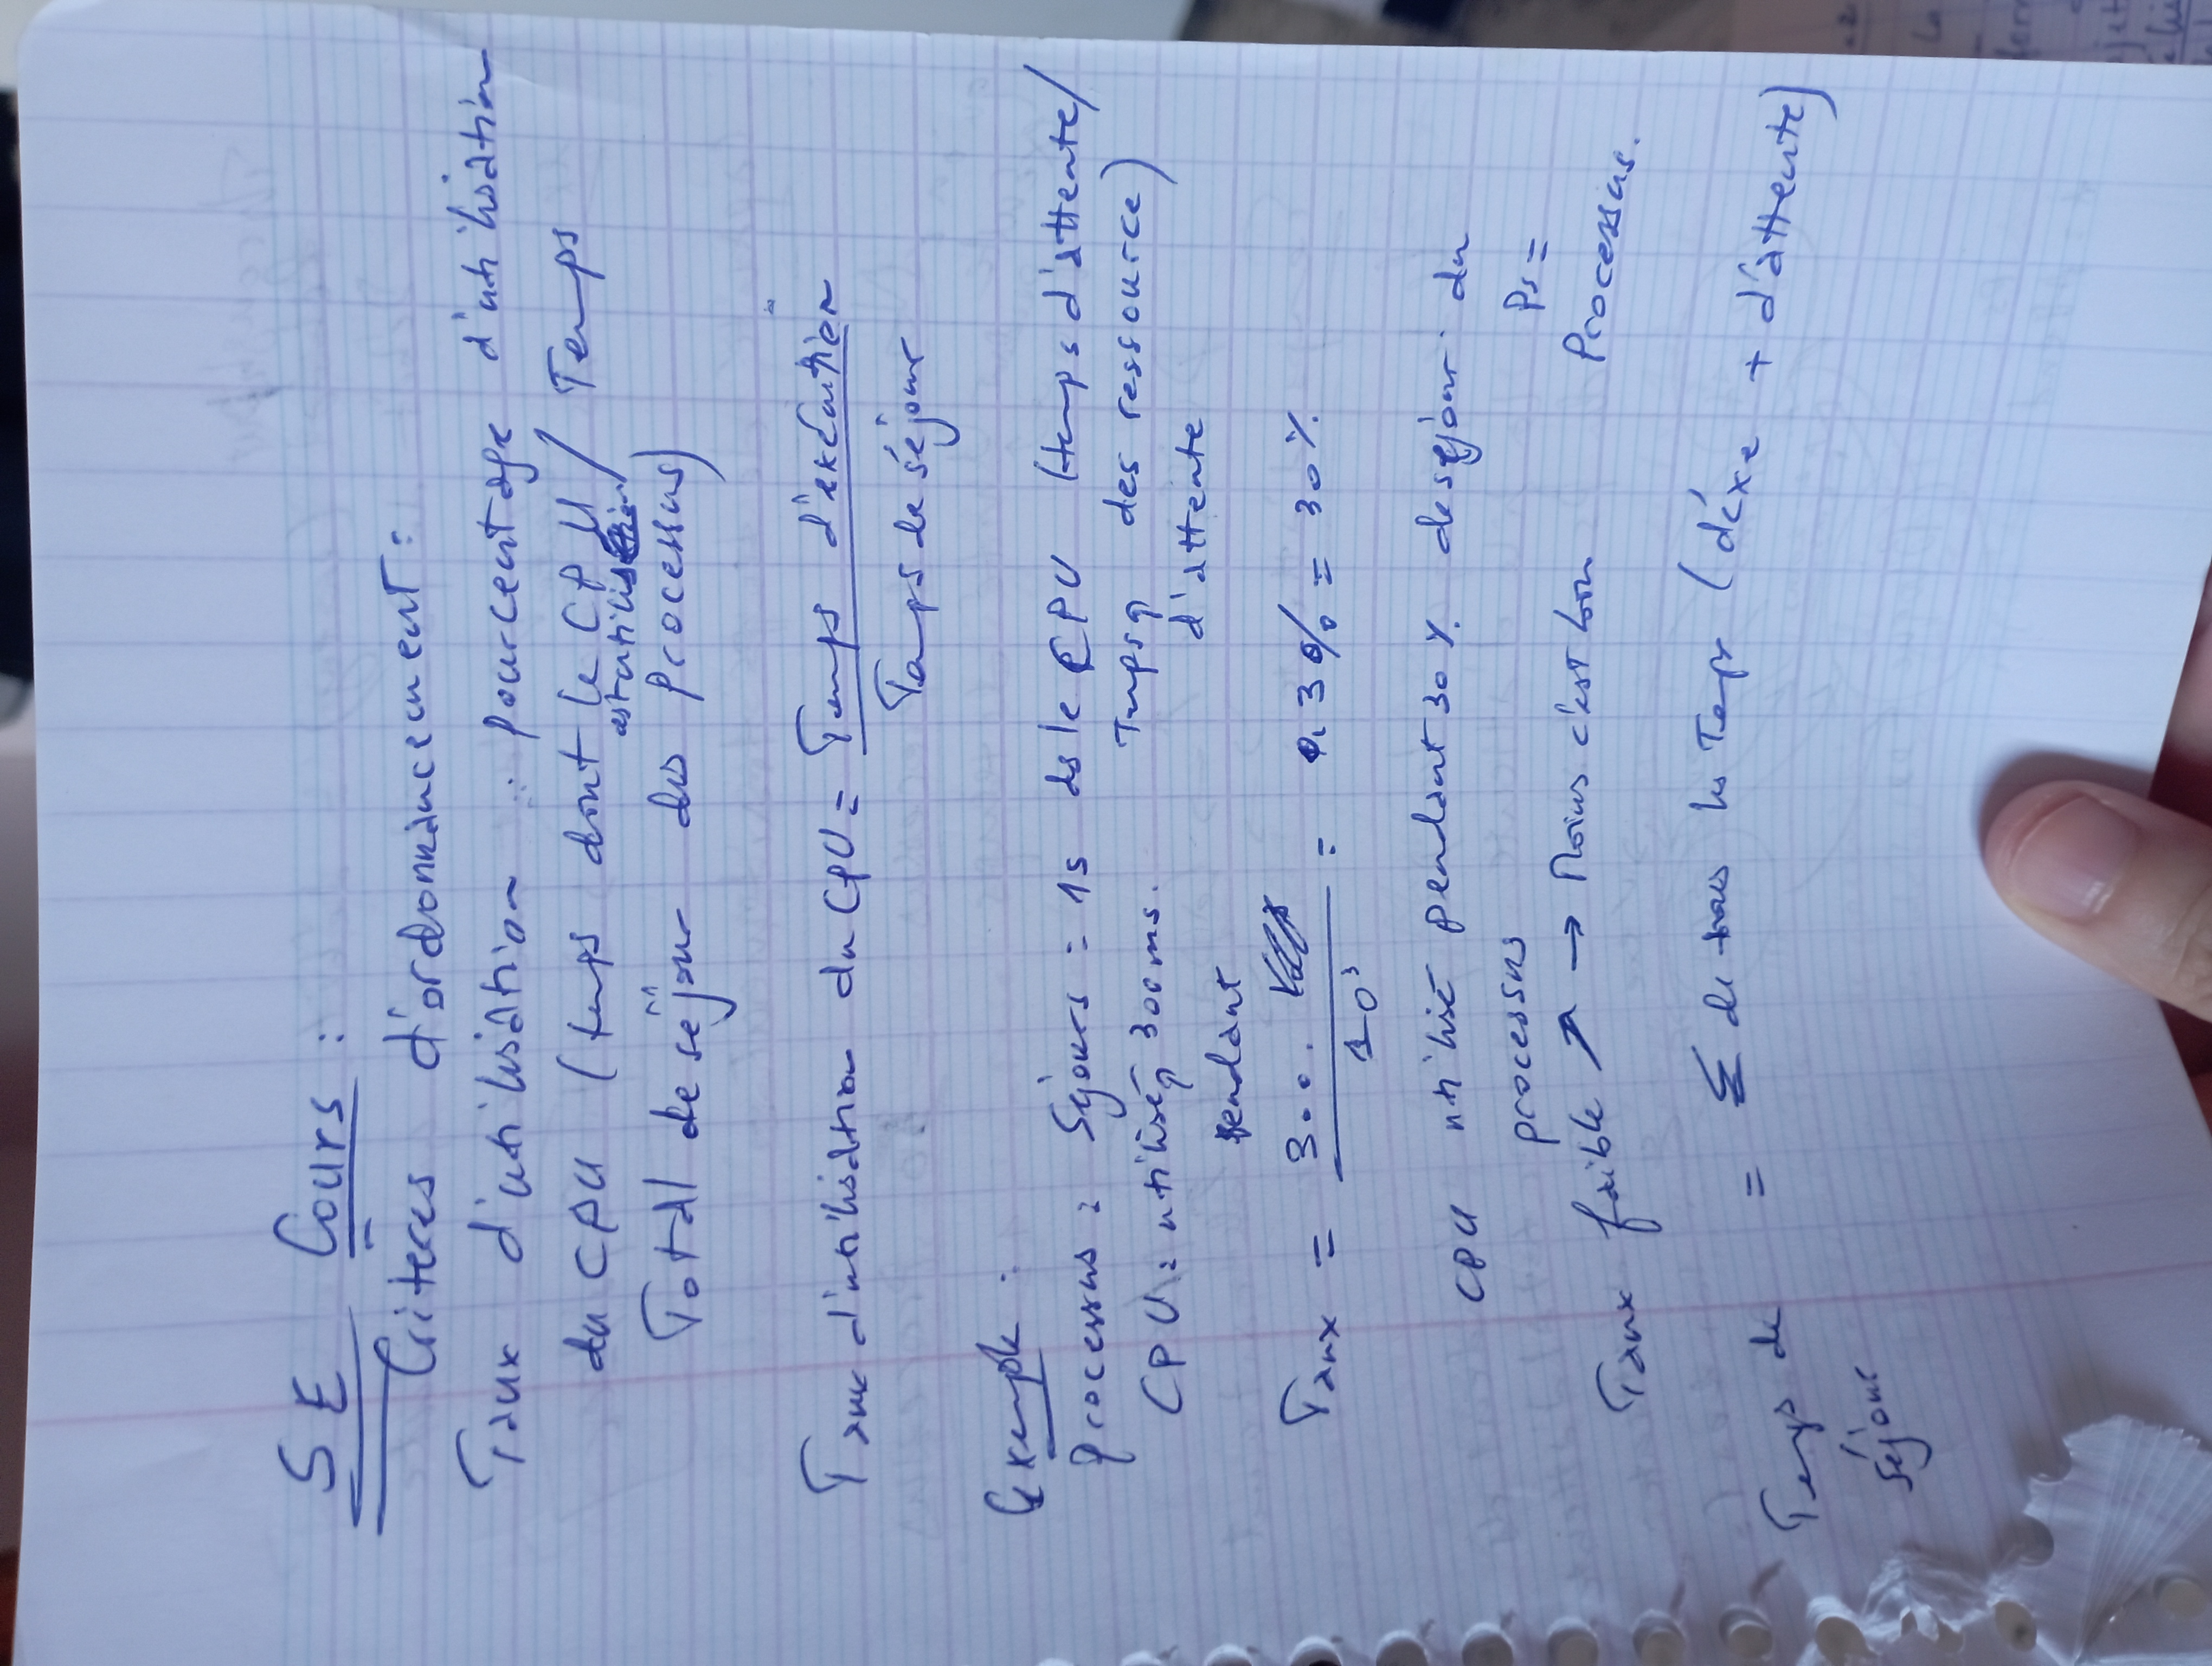 SE Cours :
Critères d'ordonnancement :
Taux d'utilisation : pourcentage d'utilisation
du CPU (temps dont le CPU / Temps
est utilisé
Total de séjour des processus)
Taux d'utilisation du CPU = Temps d'exécution
Temps de séjour
Exemple :
processus : Séjours = 1s ds le CPU (temps d'attente/
CPU : utilisé 300 ms. des ressource)
pendant d'attente
Taux = 300. / 10³ = 0.30% = 30%
CPU utilisé pendant 30% de séjour du
processus Ps =
Taux faible ↗ → Moins c'est bon Processus.
Temps de = Σ de tous les Temps (d'éxe + d'attente)
séjour